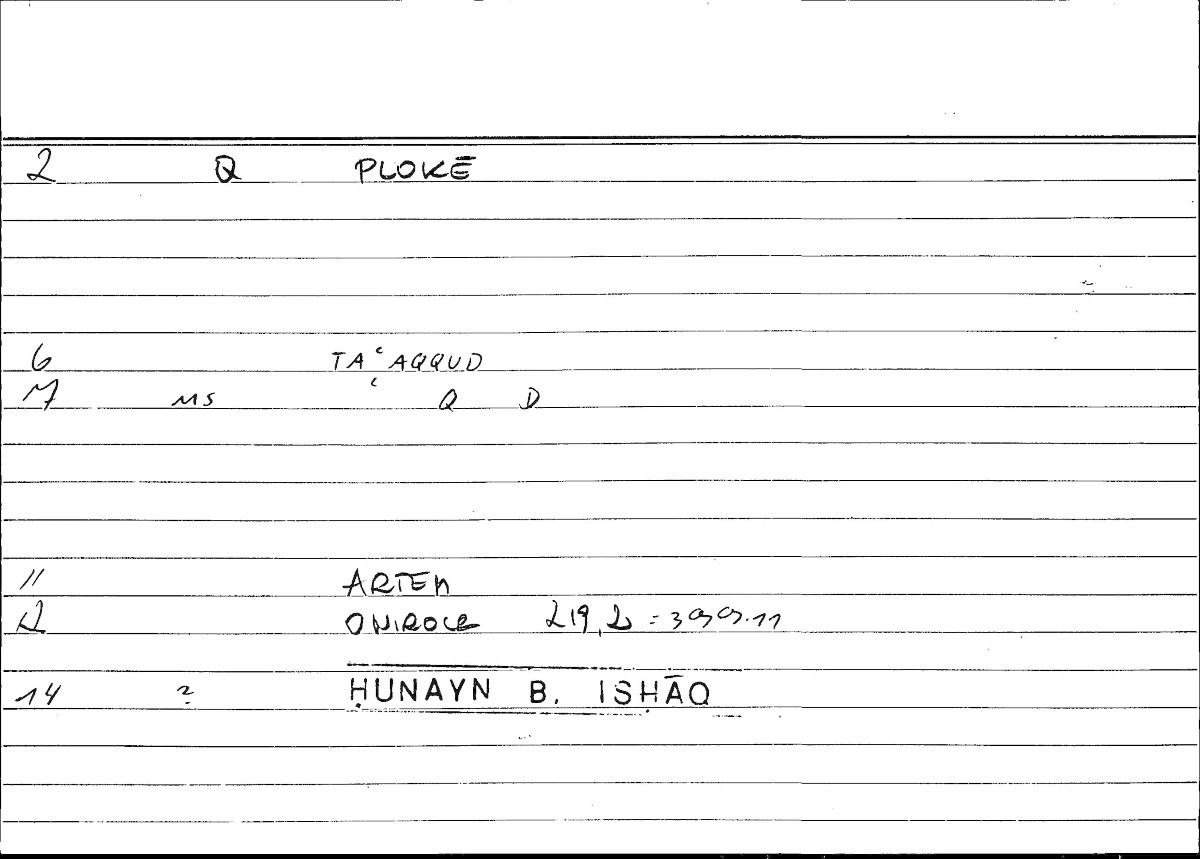 2 Q PLOKĒ
6 TAʿAQQUD
7 MS ʿ Q D
11 ARTEM
12 ONIROCR 219,2 = 399.11
14 ? ḤUNAYN B. ISḤĀQ